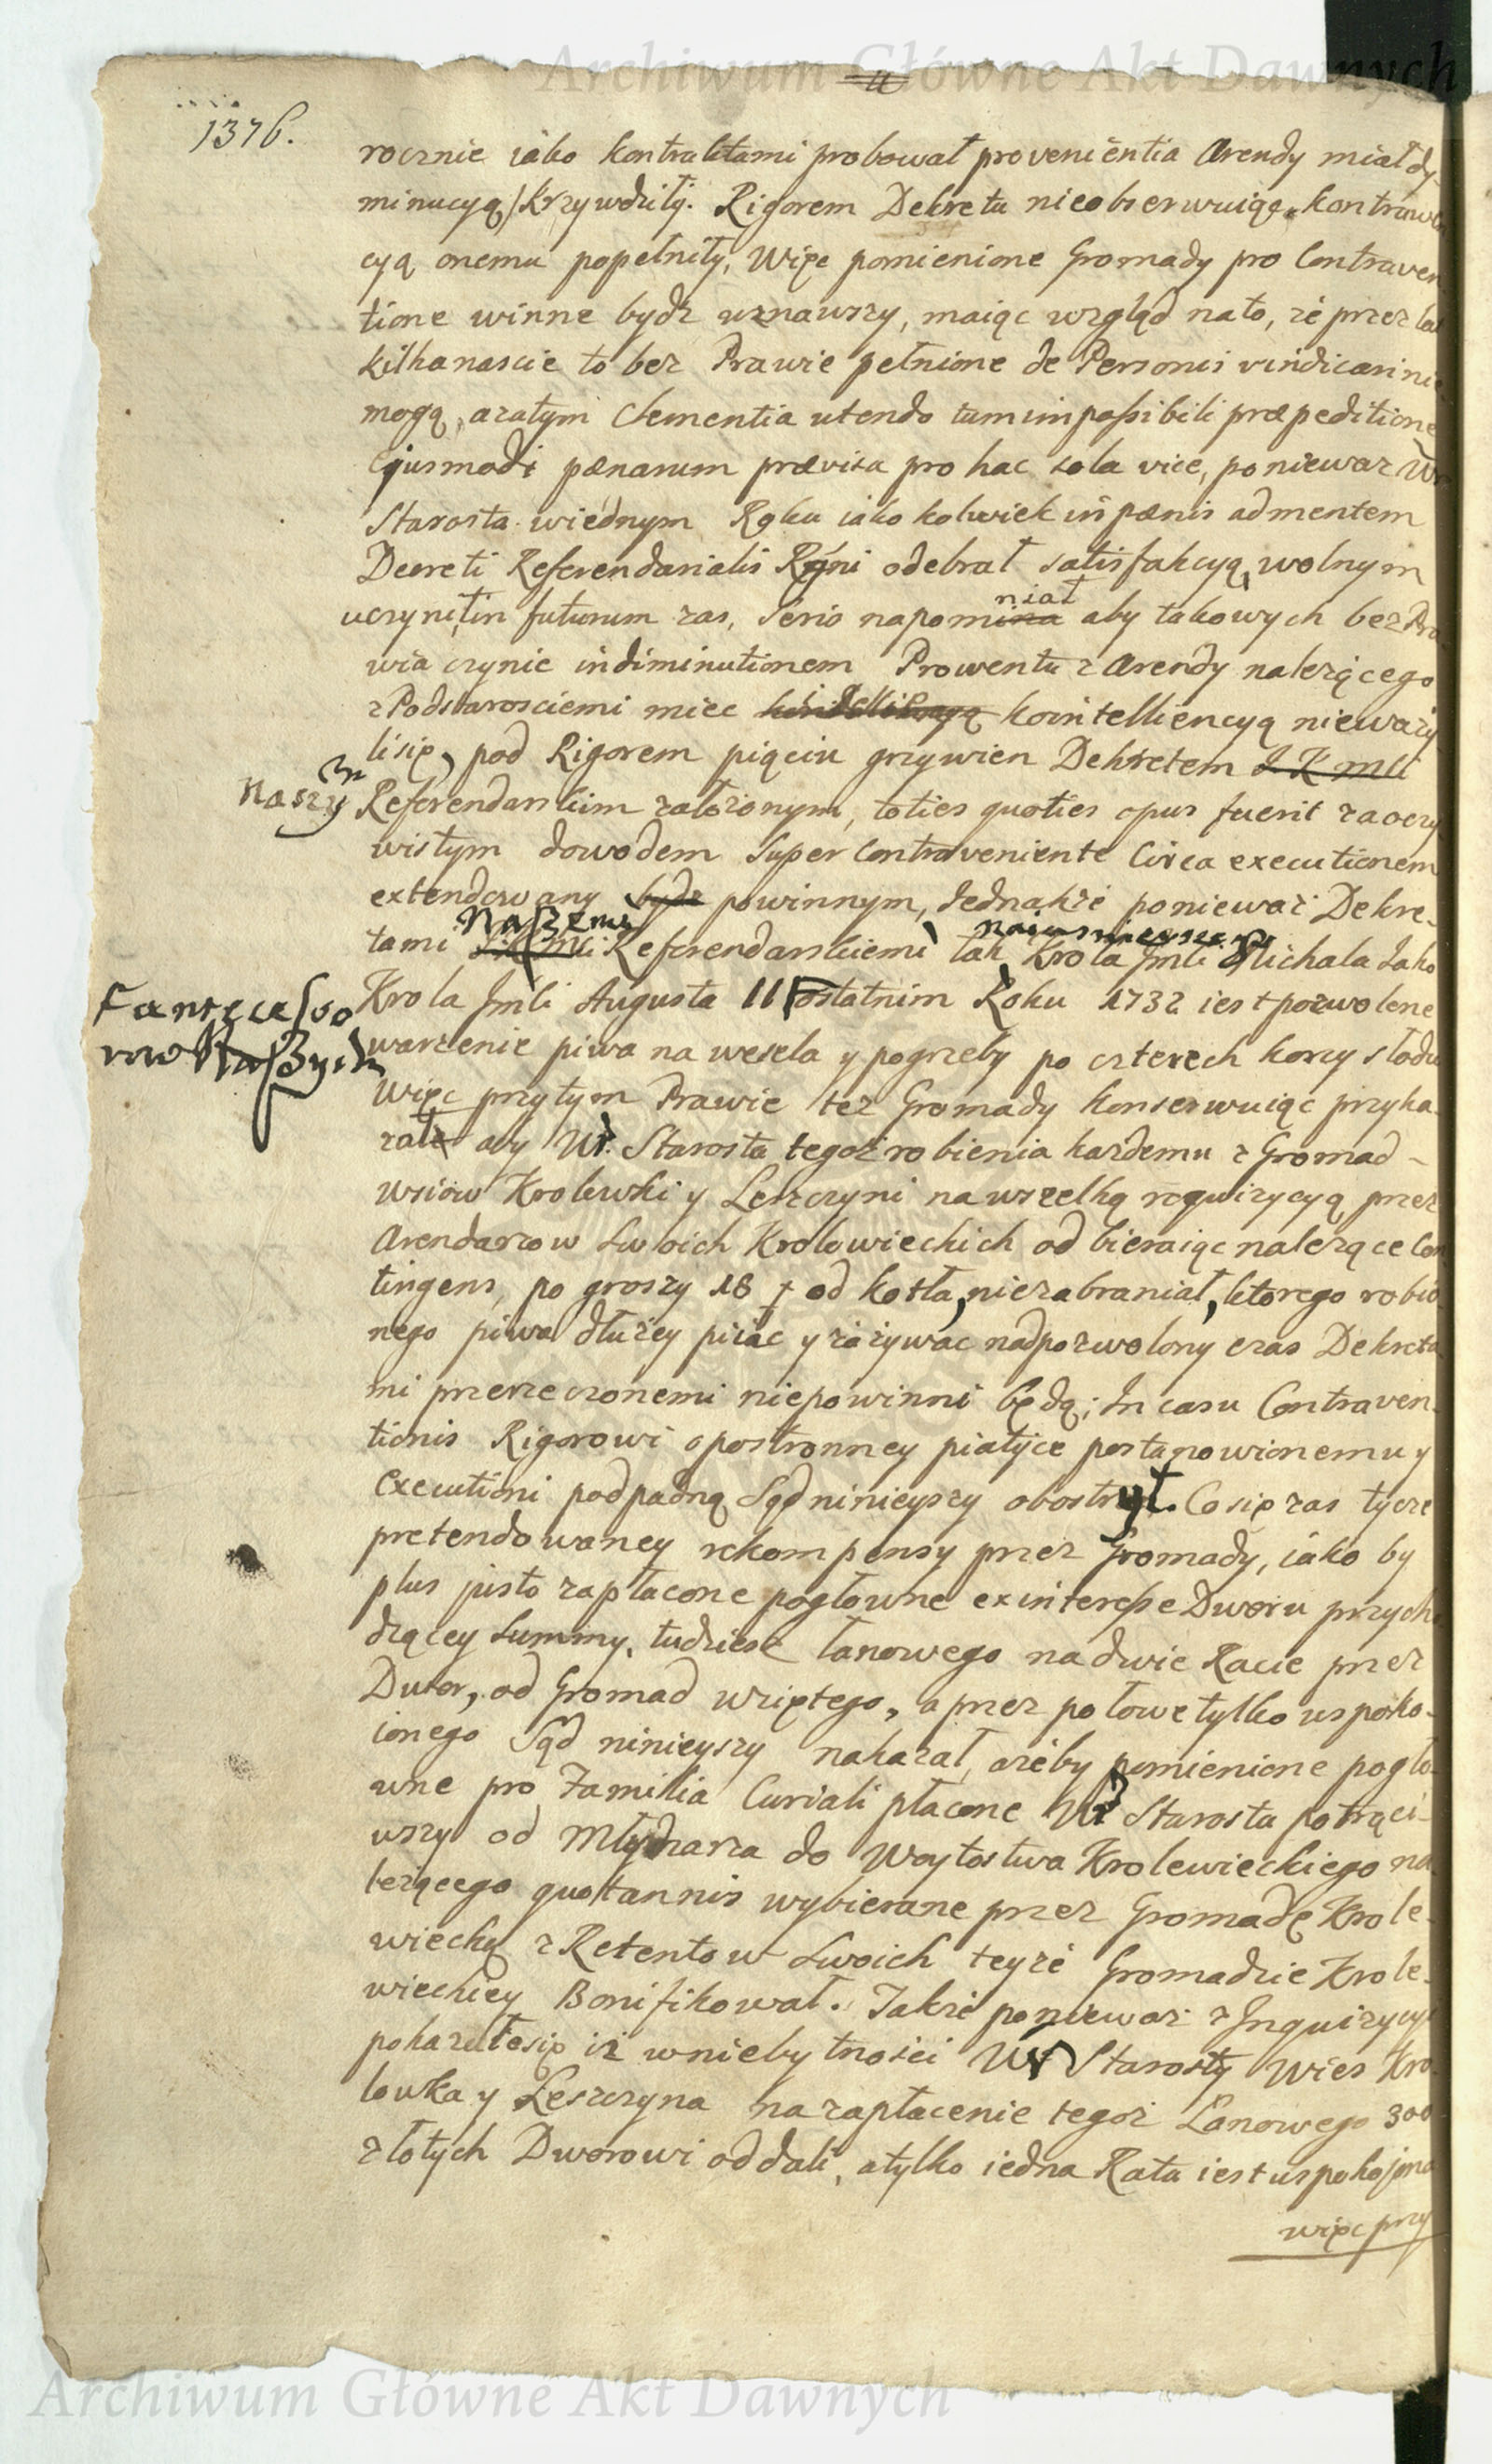 Archiwum Główne Akt Dawnych
1376.
rocznie iako kontraktami probował provenientia Arendy miał dy-
minucyą krzywdziły. Rigorem Dekretu nieobserwuiąc kontrawen
cyą onemu popełniły, Więc pomienione Gromady pro Contraven
tione winne bydz uznawszy, maiąc wzgląd nato, ze przez lat
kilkanascie to bez Prawie pełnione de Personis vindicari nie
mogą, azatym Clementia utendo tum impossibili præpeditione
ejusmodi pœnarum prævisa pro hac sola vice, poniewaz Wr
Starosta wiednym Roku iakokolwiek in pœnis admentem
Decreti Referendarialis Rgni odebrał satisfakcyą, wolnym
niał
uczynił, in futurum zas, Serio napomina aby takowych bez Pra
wia czynic in diminutionem Prowentu z Arendy nalezącego
z Podstarosciemi miec kointelliencyą niewazy
lisię, pod Rigorem pięciu grzywien Dekretem J K Mci
Naszym
Referendarskim załozonym, toties quoties opus fuerit zaoczy
wistym dowodem Super Contraveniente Circa executionem
extendowany bydz powinnym, Jednakze poniewaz Dekre-
Naszemi
naiasnieyszego
tami Referendarskiemi tak Krola Jmci Michala Jako
Krola Jmci Augusta II ostatnim Roku 1732 iest pozwolene
Naszych
warzenie piwa na wesela y pogrzeby po czterech korcy słodu
Więc przytym Prawie tez Gromady konserwuiąc przyka
zał aby Ur. Starosta tegoz robienia kazdemu z Gromad
wsiow Krolewki y Leszczyni na wszelką requizycyą przez
Arendarzow Swoich Krolowieckich odbieraiąc nalezące Con
tingens, po groszy 18 od kotła, niezabraniał, ktorego robio-
nego piwa dłuzey piiac y zazywac nadpozwolony czas Dekreta
mi przerzeczonemi niepowinni będą; In casu Contraven-
tionis Rigorowi opostronney piatyce postanowionemu y
Executioni podpadną Sąd ninieyszy obostrył. Cosię zas tycze
pretendowaney rekompensy przez Gromady, iako by
plus justo zapłacone pogłowne ex interesse Dworu przycho
dzącey Summy, tudziesz łanowego na dwie Racie przez
Dwor, od Gromad wziętego, a przez połowe tylko uspoko-
ionego Sąd ninieyszy nakazał, azeby pomienione pogło-
wne pro Familia Curiali płacone Ur Starosta potrąci-
wszy od Młynarza do Woytostwa Krolewieckiego na
lezącego quotannis wybierane przez Gromadę Krole-
wiecką z Retentow Swoich teyze Gromadzie Krole-
wieckiey Bonifikował. Takze poniewaz z Inquizycyi
pokazałosię iz wniebytnosci Ur Starosty Wies Kro
lowka y Leszczyna na zapłacenie tegoz Lanowego 300
złotych Dworowi oddali, atylko iedna Rata iest uspokojona
więc przy
Archiwum Główne Akt Dawnych